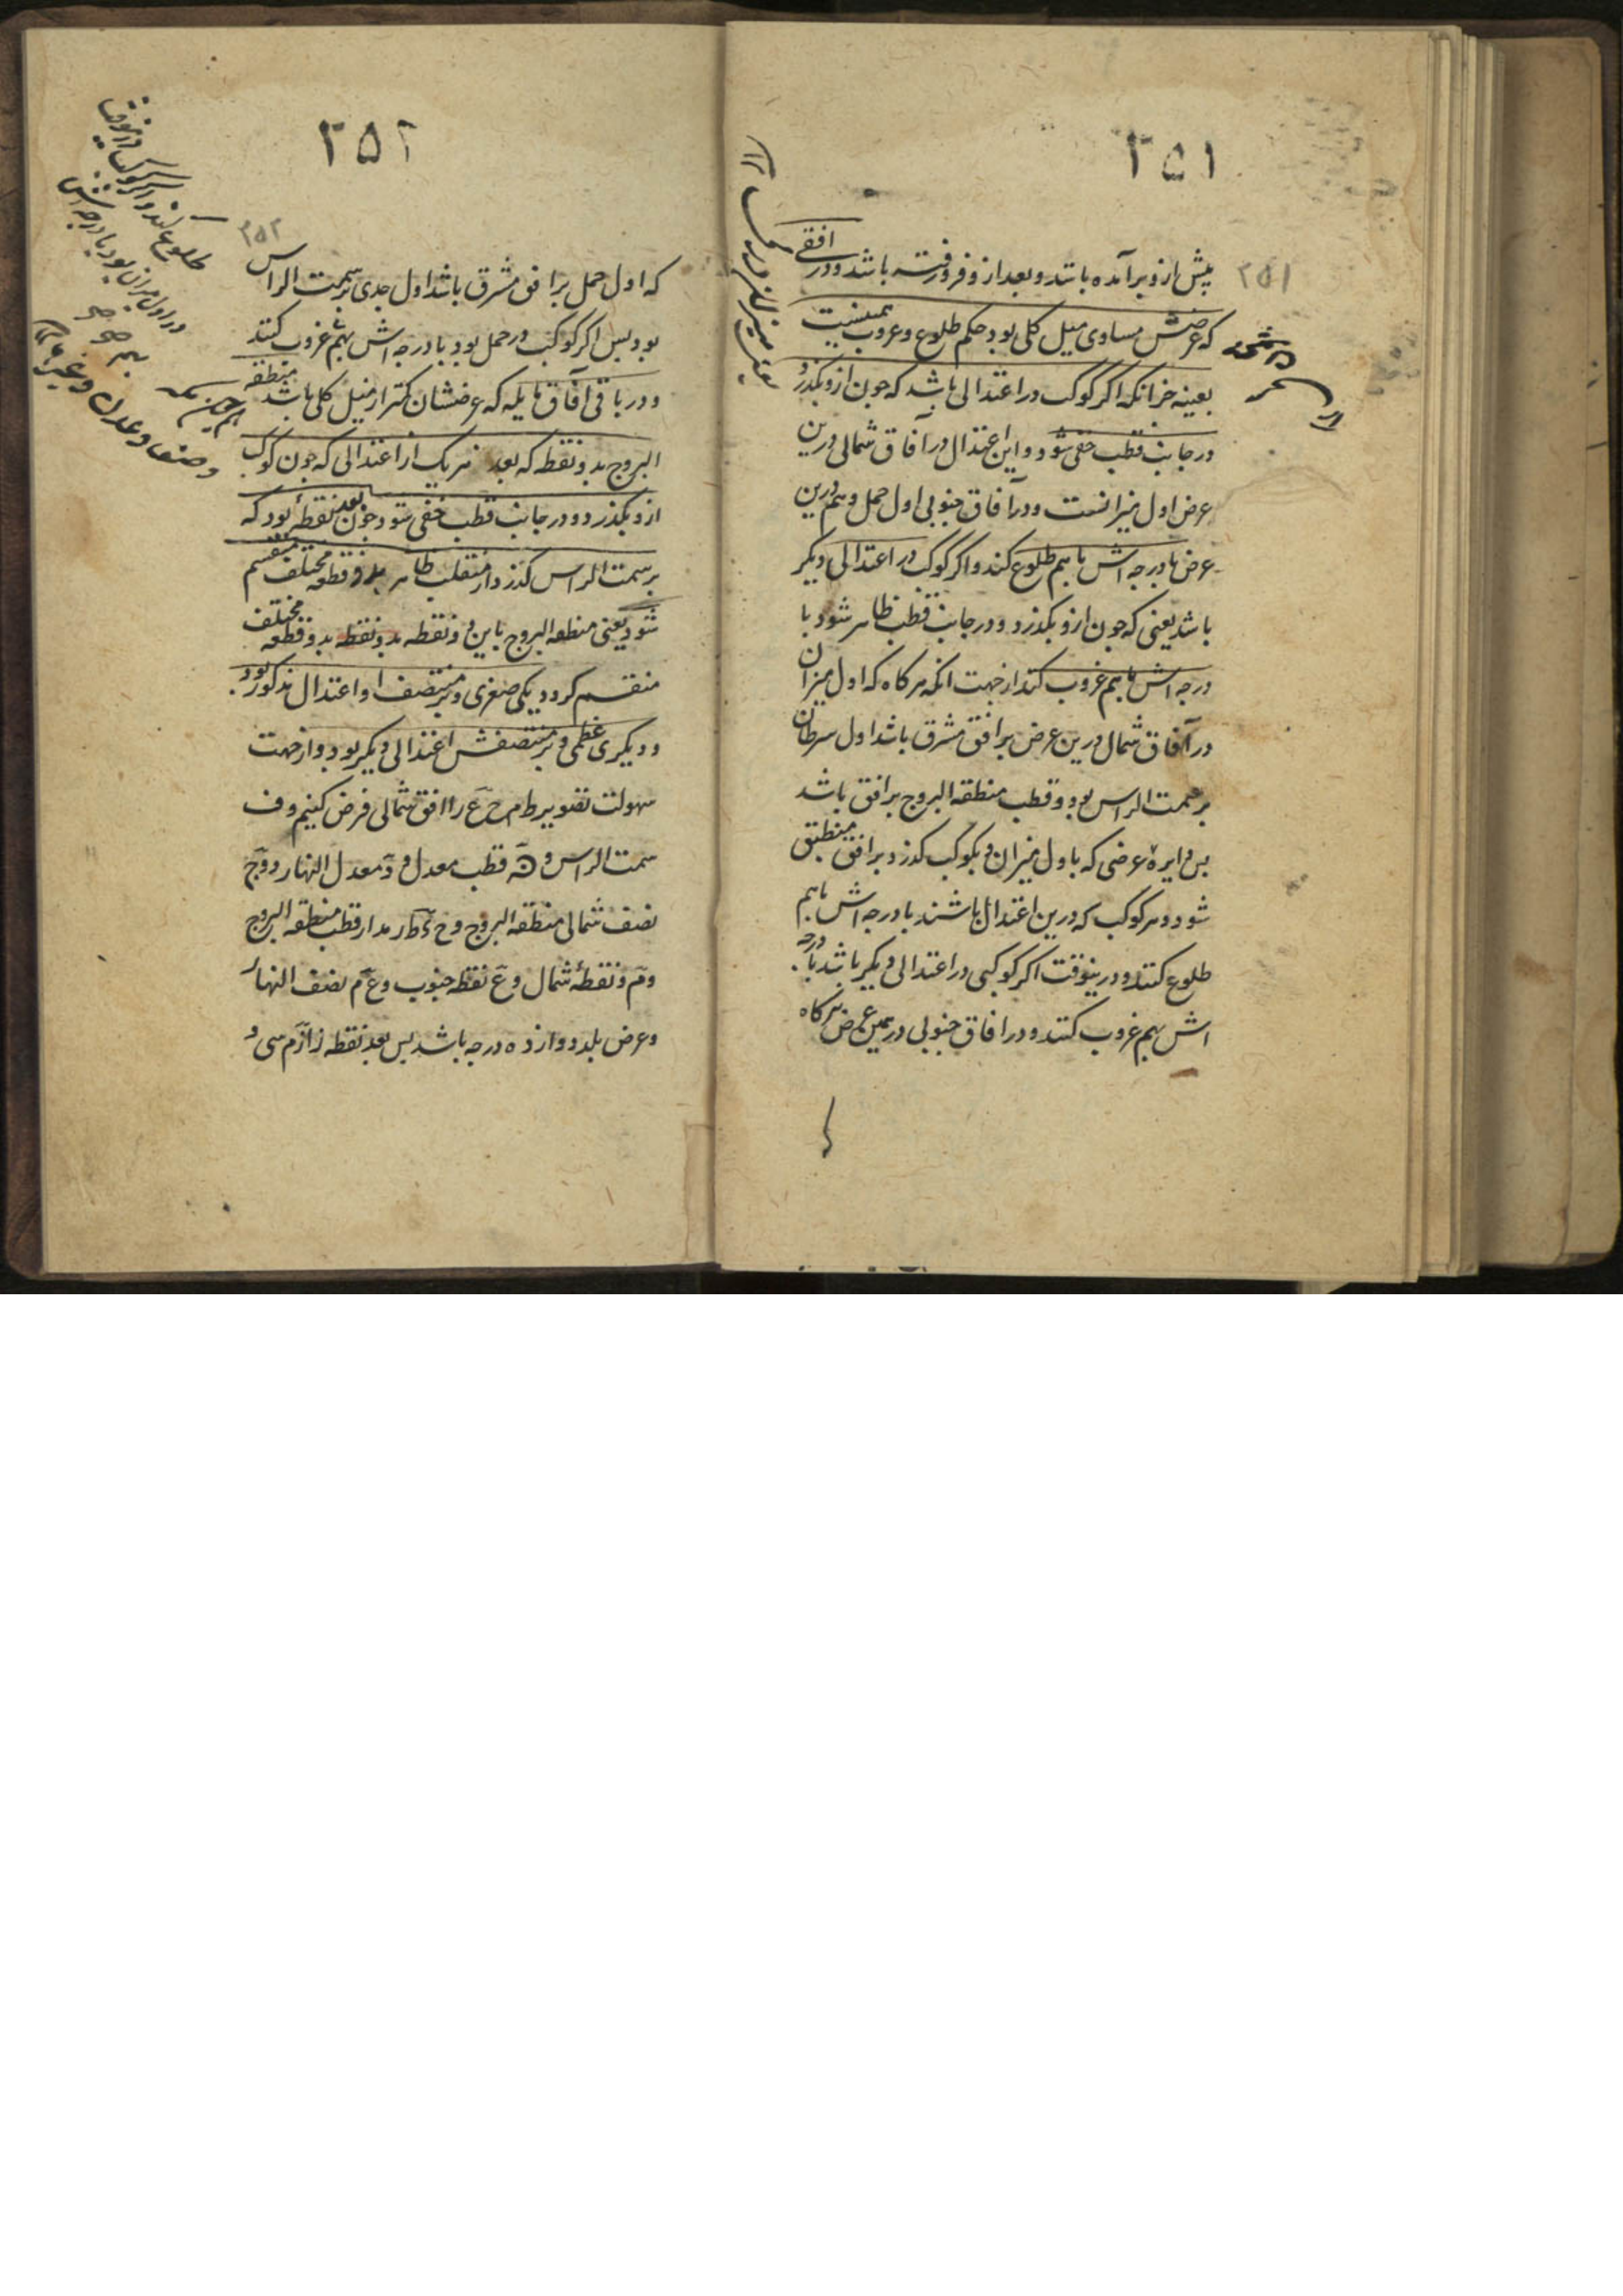 ۲۵۱
۲۵۱
پیش ازو برآمده باشد و بعد ازو فرو رفته باشد و در افقی
که عرضش مساوی میل کلی بود حکم طلوع و غروب همینست
بعینه جز انکه اکر کوکب در اعتدالی باشد که جون ازو بکذرد
در جانب قطب خفی شود و این اعتدال در آفاق شمالی درین
عرض اول میزانست و در آفاق جنوبی اول حمل و هم درین
عرض با درجه اش با هم طلوع کند و اکر کوکب در اعتدالی دیکر
باشد یعنی که جون ازو بکذرد و در جانب قطب ظاهر شود با
درجه اش با هم غروب کند از جهت انکه هر کاه که اول میزان
در آفاق شمال درین عرض بر افق مشرق باشد اول سرطان
بر سمت الراس بود و قطب منطقه البروج بر افق باشد
بس دایرهٔ عرضی که باول میزان و بکوکب کذرد بر افق منطبق
شود و هر کوکب که درین اعتدال باشند با درجه اش با هم
طلوع کنند و درینوقت اکر کوکبی در اعتدالی دیکر باشد با درجه
اش بهم غروب کنند و در افاق جنوبی در همین عرض هر کاه
۲۵۲
۲۵۲
که اول حمل بر افق مشرق باشد اول جدی بر سمت الراس
بود بس اکر کوکب در حمل بود با درجه اش بهم غروب کند
و در باقی آفاق مایله که عرضشان کمتر از میل کلی باشد منطقه
البروج بدو نقطه که بعد هر یک از اعتدالی که جون کوکب
ازو بکذرد و در جانب قطب خفی شود جون بعد نقطهٔ بود که
بر سمت الراس کذرد از منقلب ظاهر بدو قطعه مختلف منقسم
شود یعنی منطقه البروج باین دو نقطه بدو نقطه بدو قطعه مختلف
منقسم کردد یکی صغری و بر منتصف او اعتدال مذکور بود
و دیکری عظمی و بر منتصفش اعتدالی دیکر بود و از جهت
سهولت تصویر ط م ح ع را افق شمالی فرض کنیم و ف
سمت الراس و ه قطب معدل و د معدل النهار و و ج
نصف شمالی منطقه البروج و ح ی ط ر مدار قطب منطقه البروج
و م و نقطهٔ شمال و ع نقطه جنوب و ع م نصف النهار
و عرض بلد دوازده درجه باشد بس بعد نقطه ز از م سی و